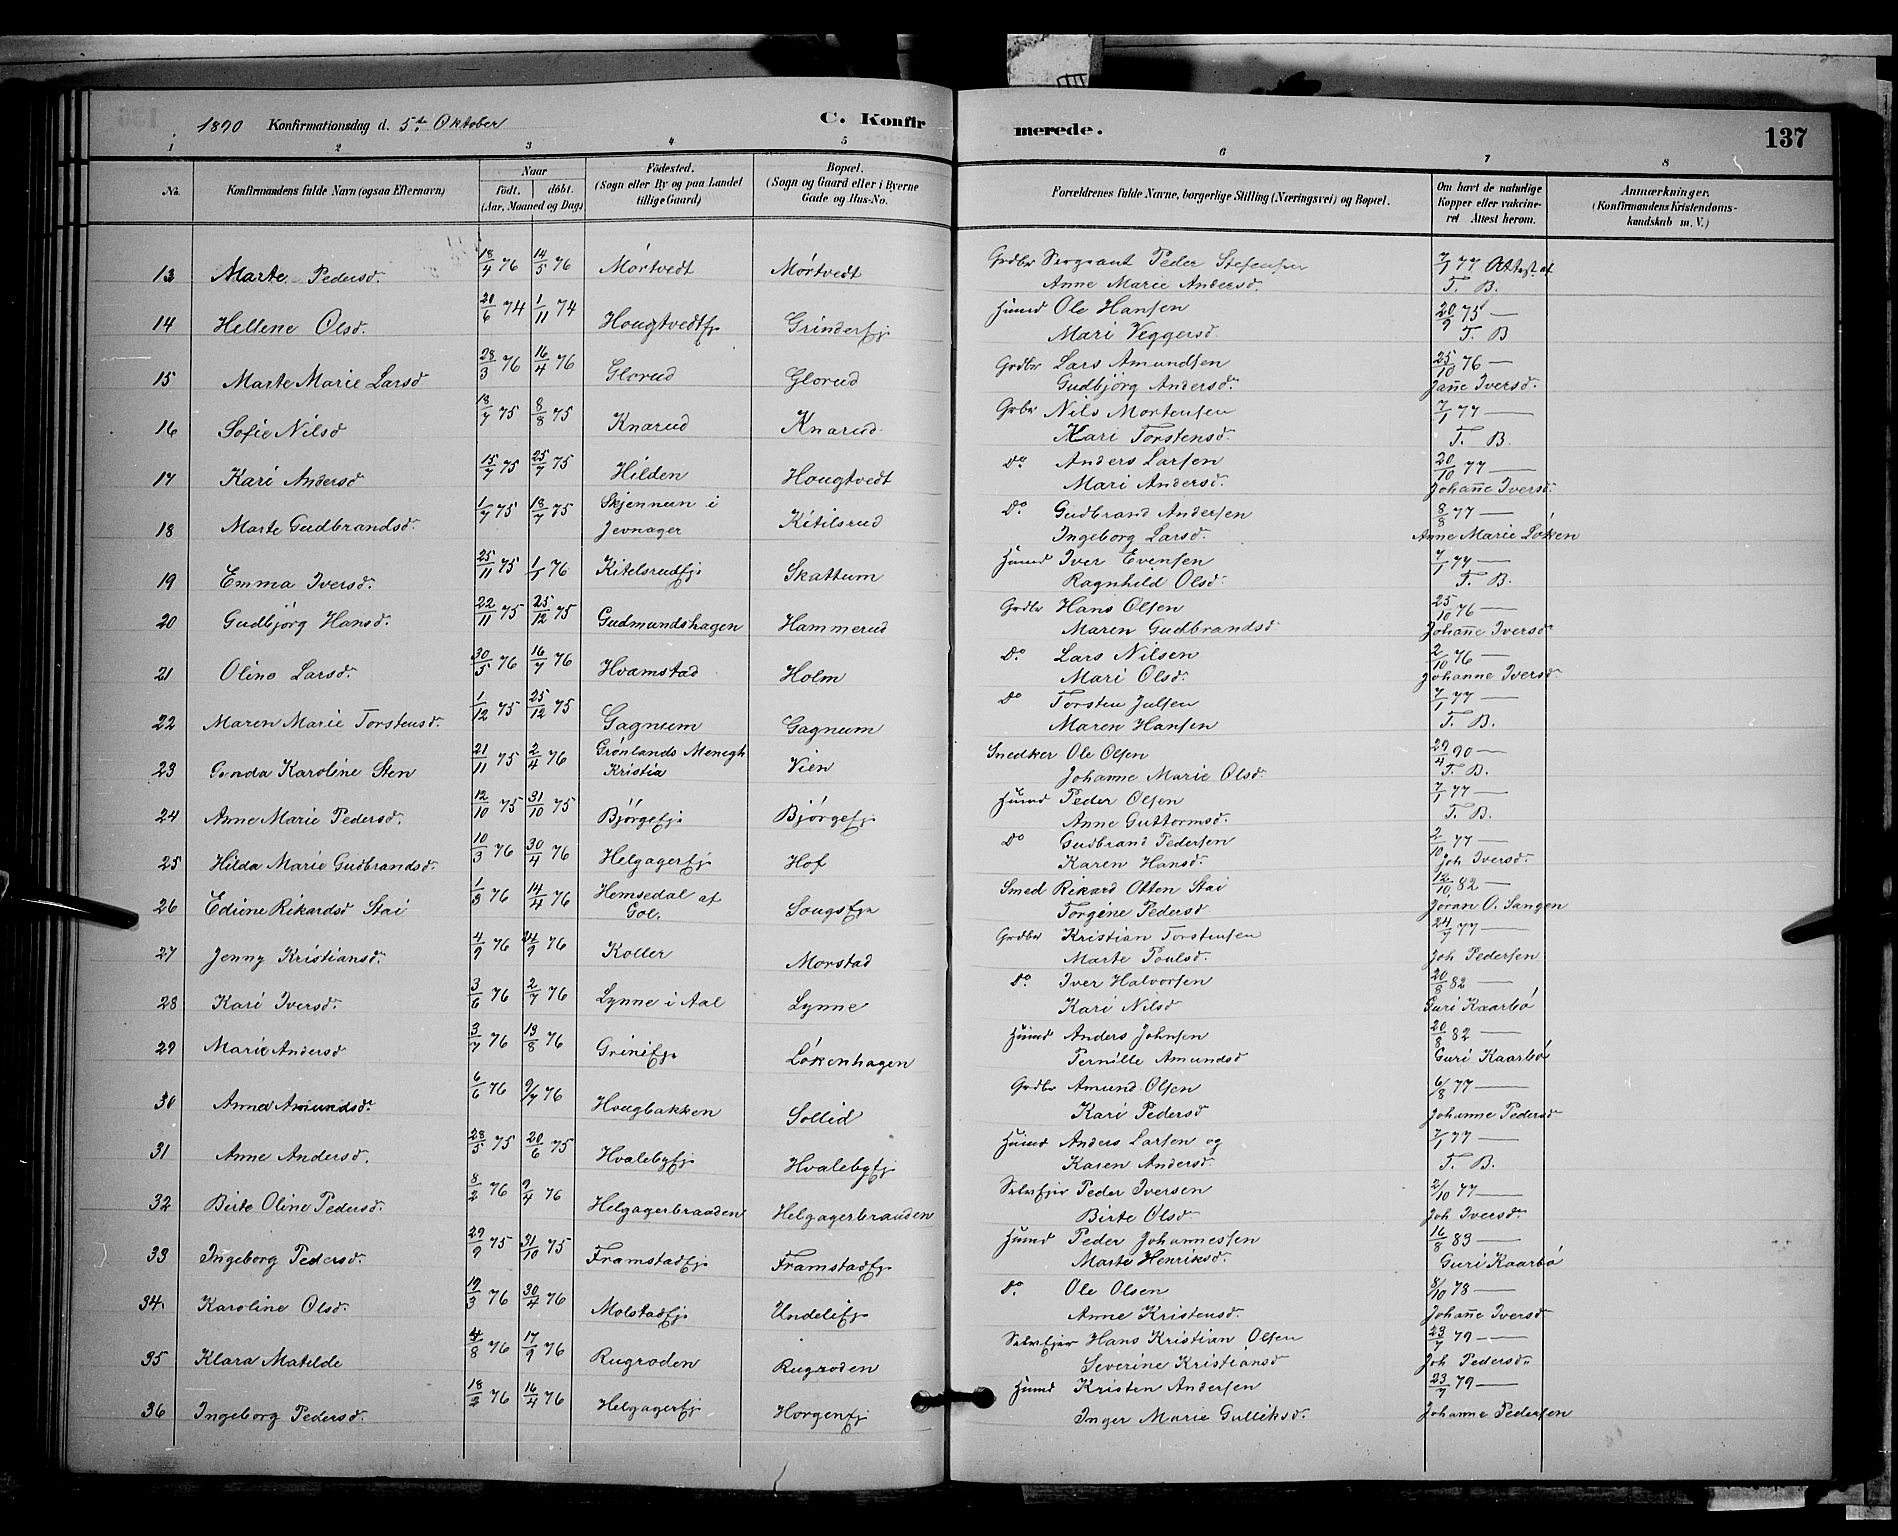 1890 Konfirmationsdag d. 5te Oktober C. Konfir merede. 137
1 2 3 4 5 6 7 8
No. Konfirmandens fulde Navn (ogsaa Efternavn) Naar født. døbt. (Aar, Maaned og Dag) Fødested. (Sogn eller By og paa Landet tillige Gaard) Bopæl. (Sogn og Gaard eller i Byerne Gade og Hus-No. Forældrenes fulde Navne, borgerlige Stilling (Næringsvei) og Bopæl. Om havt de naturlige Kopper eller vakcineret Attest herom. Anmærkninger. (Konfirmandens Kristendomskundskab m. V.)
13 Marte Pedersd. 18/4 76 14/5 76 Mörtvedt Mörtvedt Grdbr Sergeant Peder Stefensen 7/1 77 Attest af
Anne Marie Andersd. T. B.
14 Hellene Olsd. 20/6 74 1/11 74 Hougtvedtfj. Grinderfj Husmd Ole Hansen 20/9 75 —
Mari Veggersd T. B
15 Marte Marie Larsd 28/3 76 16/4 76 Glorud Glorud Grdbr Lars Amundsen 25/10 76 —
Gudbjörg Andersd. Jane Iversd.
16 Sofie Nilsd 18/7 75 8/8 75 Knarud Knarud Grbr Nils Mortensen 7/1 77 —
Kari Torstensd. T. B.
17 Kari Andersd 15/7 75 25/7 75 Hilden Hougtvedt Do. Anders Larsen 20/10 77 —
Mari Andersd. Johane Iversd.
18 Marte Gudbrandsd. 1/7 75 18/7 75 Skjennun i Jevnager Kitilsrud Do Gudbrand Andersen 8/8 77 —
Ingeborg Larsd. Anne Marie Løken
19 Emma Iversd. 25/11 75 1/1 76 Kitelsrudfj. Skattum Husmd Iver Evensen 7/1 77 —
Ragnhild Olsd. T. B.
20 Gudbjörg Hansd. 22/11 75 25/12 75 Gudmundshagen Hammerud Grdbr Hans Olsen 25/10 76 —
Maren Gudbrandsd Johane Iversd
21 Oline Larsd. 30/5 76 16/7 76 Hvamstad Holm Do Lars Nilsen 2/10 76 —
Mari Olsd. Johanne Iversd.
22 Maren Marie Torstensd. 1/12 75 25/12 75 Gagnum Gagnum Do Torsten Julsen 7/1 77 —
Maren Hansen T. B.
23 Gunda Karoline Sten 21/11 75 2/4 76 Grønlands Menigh Kristia Vien Snedker Ole Olsen 29/4 90 —
Johanne Marie Olsd. T. B.
24 Anne Marie Pedersd. 12/10 75 31/10 75 Bjørgefj. Bjørgefj. Husmd Peder Olsen 7/1 77 —
Anne Guttormsd. T. B.
25 Hilda Marie Gudbrandsd. 10/3 76 30/4 76 Helgagerfj. Hof Do Gudbrand Pedersen 2/10 77 —
Karen Hansd. Joh Iversd.
26 Edine Rikardsd Stai 1/3 76 14/4 76 Hemsedal af Gol. Sougsfj. Smed Rikard Otten Stai 12/10 82 —
Torgine Pedersd Jöran O. Sangen
27 Jenny Kristiansd. 4/9 76 24/9 76 Koller Morstad Grdbr Kristian Torstensen 24/7 77 —
Marte Poulsd. Joh Pedersen
28 Kari Iversd. 3/6 76 2/7 76 Lynne i Aal Lynne Do. Iver Halvorsen 20/8 82 —
Kari Nilsd Guri Kaarbø
29 Marie Andersd 3/7 76 13/8 76 Grinifj. Løkenhagen Husmd Anders Johnsen 20/8 82 —
Pernille Amundsd Guri Kaarbø
30 Anna Amundsd. 6/6 76 9/7 76 Hougbakken Sollid Grdbr Amund Olsen 6/8 77 —
Kari Pedersd Johanne Pedersd
31 Anne Andersd. 28/5 75 20/6 75 Hvalebyfj. Hvalebyfj. Husmd Anders Larsen og 7/1 77 —
Karen Andersd. T. B.
32 Birte Oline Pedersd. 8/2 76 9/4 76 Helgagerbraaden Helgagerbraaden Selvejer Peder Iversen 2/10 77 —
Birte Olsd Joh Iversd.
33 Ingeborg Pedersd. 29/9 75 31/10 75 Framstadfj. Framstadfj. Husmd Peder Johannessen 16/8 83 —
Marte Henriksd. Guri Kaarbø
34. Karoline Olsd. 19/3 76 30/4 76 Molstadfj. Undelifj. Do. Ole Olsen 8/10 78 —
Anne Kristensd. Johane Iversd
35 Klara Matilde 4/8 76 17/9 76 Rugroden Rugroden Selvejer Hans Kristian Olsen 23/7 79 —
Severine Kristiansd Joh Pedersd.
36 Ingeborg Pedersd. 18/2 76 16/4 76 Helgagerfj. Horgenfj. Husmd Kristen Andersen 23/7 79 —
Inger Marie Gulliksd. Johanne Pedersen